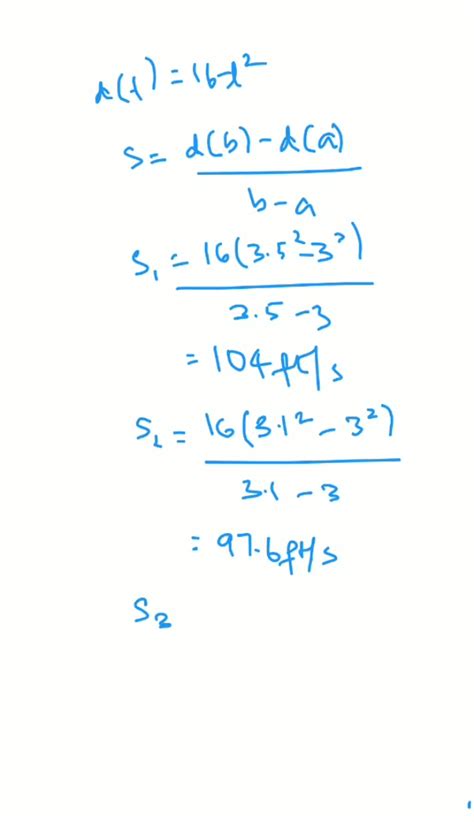 d(t) = 16t²
S = d(b) - d(a)
b - a
S₁ = 16(3.5² - 3²)
3.5 - 3
= 104 ft/s
S₂ = 16(3.1² - 3²)
3.1 - 3
= 97.6 ft/s
S₃